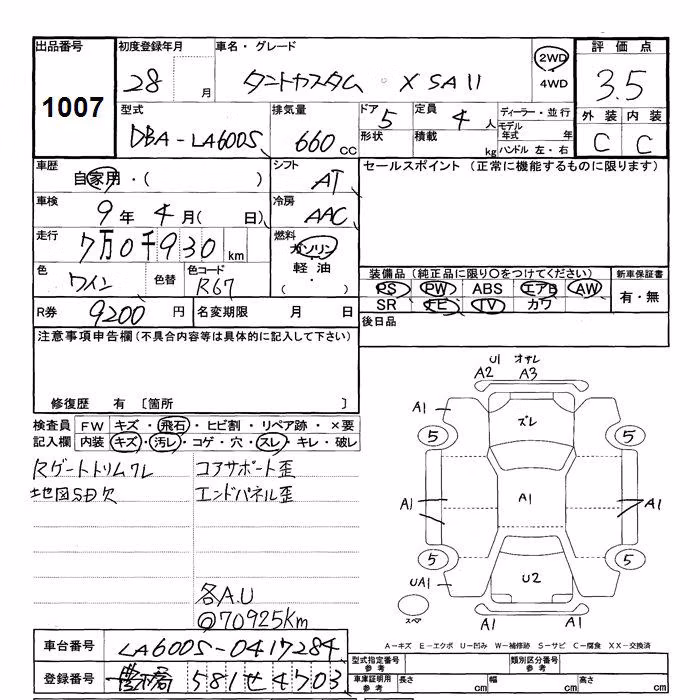 出品番号 初度登録年月 車名・グレード 評価点
1007 28 月 タントカスタム X SAII 2WD 4WD 3.5
型式 DBA-LA600S 排気量 660cc ドア 5 定員 4人 ディーラー・並行
形状 積載 kg モデル年式 年 ハンドル 左・右
外装 内装
C C
車歴 自家用・( ) シフト AT セールスポイント (正常に機能するものに限ります)
車検 9年4月( 日) 冷房 AAC
走行 7万0千930km 燃料 ガソリン
軽油・( )
色 ワイン 色替 色コード R67
装備品 (純正品に限り○をつけてください) 新車保証書
PS PW ABS エアB AW 有・無
SR ナビ TV カワ
R券 9200円 名変期限 月 日 後日品
注意事項申告欄 (不具合内容等は具体的に記入して下さい)
修復歴 有 〔箇所 〕
検査員 FW キズ・飛石・ヒビ割・リペア跡・×要
記入欄 内装 キズ・汚レ・コゲ・穴・スレ・キレ・破レ
Rゲートトリムワレ コアサポート歪
地図SD欠 エンドパネル歪
各A.U
@70925km
U1 オサレ
A2 A3
A1 ズレ
5 5
A1 A1 A1
5 5
UA1 U2
スペア
A1 A1
A-キズ E-エクボ U-凹み W-補修跡 S-サビ C-腐食 XX-交換済
車台番号 LA600S-0417284 型式指定番号 参考 類別区分番号 参考
登録番号 581 せ 4703 車庫証明用 参考 長さ cm 幅 cm 高さ cm